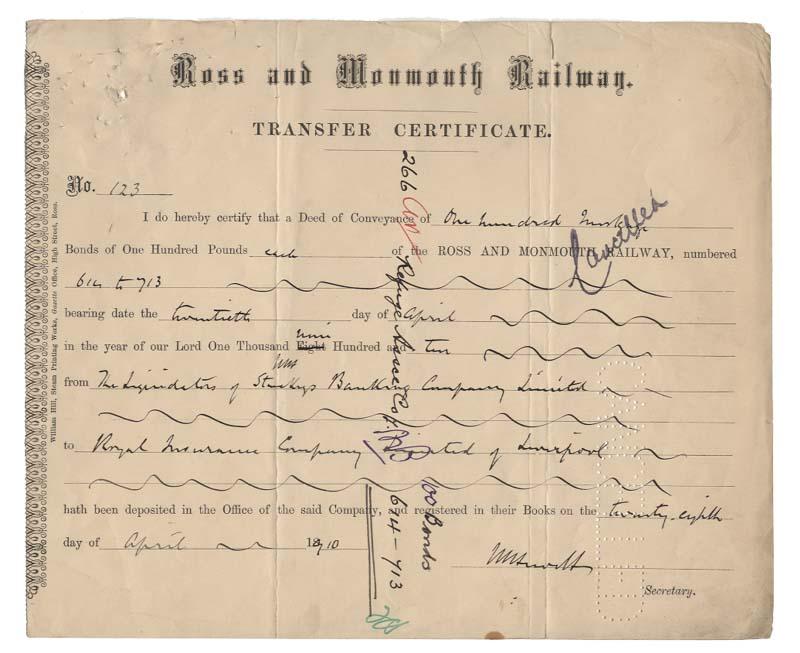 Ross and Monmouth Railway.
TRANSFER CERTIFICATE.
No. 123
I do hereby certify that a Deed of Conveyance of One hundred
Bonds of One Hundred Pounds each of the ROSS AND MONMOUTH RAILWAY, numbered
614 to 713
bearing date the twentieth day of April
in the year of our Lord One Thousand Eight nine Hundred and ten
from The Liquidators of Stuckeys Banking Company Limited
to Royal Insurance Company Limited of Liverpool
hath been deposited in the Office of the said Company, and registered in their Books on the twenty-eighth
day of April 1910
Secretary.
Cancelled
266
Refuge Assce Co Ld
100 Bonds
614-713
CANCELLED
William Hill, Steam Printing Works, Gazette Office, High Street, Ross.